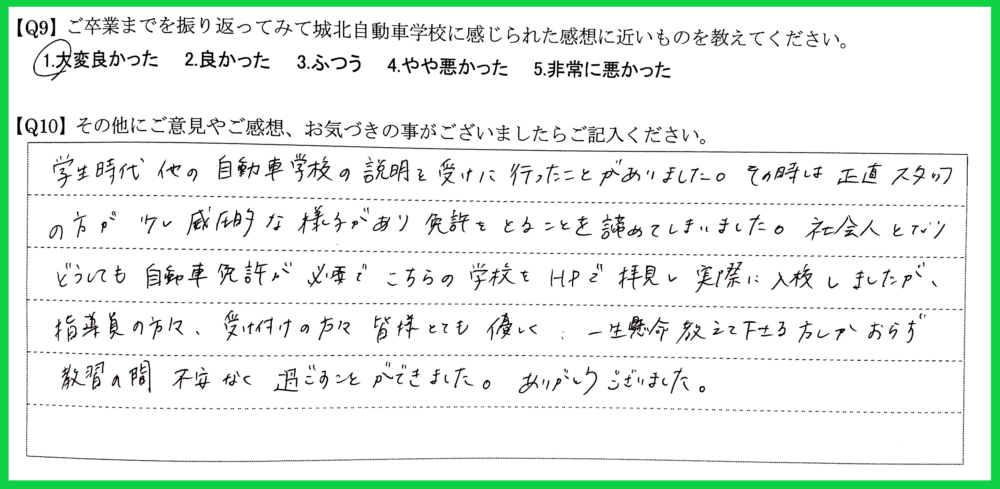 【Q9】ご卒業までを振り返ってみて城北自動車学校に感じられた感想に近いものを教えてください。
1.大変良かった 2.良かった 3.ふつう 4.やや悪かった 5.非常に悪かった
【Q10】その他にご意見やご感想、お気づきの事がございましたらご記入ください。
学生時代 他の自動車学校の説明を受けに行ったことがありました。その時は正直スタッフ
の方が少し威圧的な様子があり免許をとることを諦めてしまいました。社会人となり
どうしても自動車免許が必要でこちらの学校をHPで拝見し実際に入校しましたが、
指導員の方々、受け付けの方々皆様とても優しく、一生懸命教えて下さる方しかおらず
教習の間不安なく過ごすことができました。ありがとうございました。